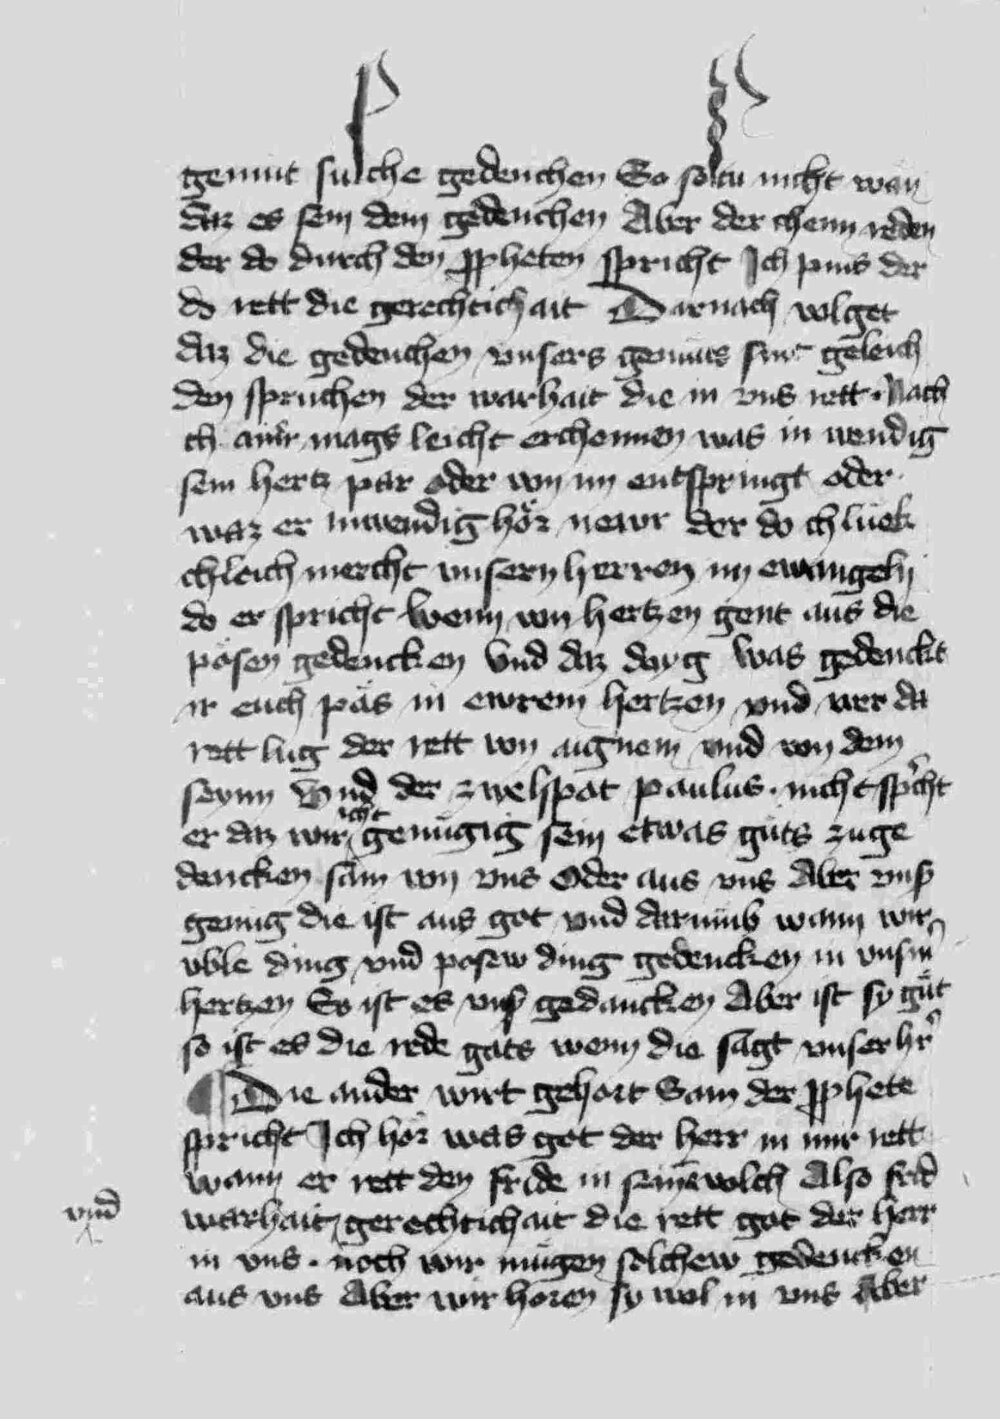 gemüt sulche gedenchen So soltu nicht wan
daz es sein dein gedenchen Aber der chenn reden
der do durch den ppheten spricht Ich pins der
do rett die gerechtichait Darnach volget
daz die gedenchen unsers gemüts sint geleich
den spruchen der warhait die in uns rett · Nach
ch ainr mags leicht erchennen was in wendig
sein hertz par oder von im entspringt oder
waz er inwendig hör newr der do chlück
chleich mercht unsern herren im ewangely
do er spricht Wenn von hertzen gent aus die
pösen gedencken Und daz doryg was gedenckt
ir euch päs in ewrem hertzen und wer da
rett lug der rett von aignem und von dem
seynn Und der zwelfpot paulus · nicht spcht
er daz wir icht genügig sein etwas güts zuge
dencken sam von uns Oder aus uns Aber uns
genug die ist aus got und darumb wann wir
uble ding und posew ding gedencken in unsm
hertzen So ist es uns gedancken Aber ist sy güt
so ist es die rede gots wenn die sagt unser hr
Die ander wirt gehort Sam der pphete
spricht Ich hör was got der herr in mir rett
wann er rett den fride in seine volch Also frid
warhait gerechtichait die rett got der herr
und
in uns · noch wir mügen solchew gedencken
aus uns Aber wir horen sy wol in uns Aber